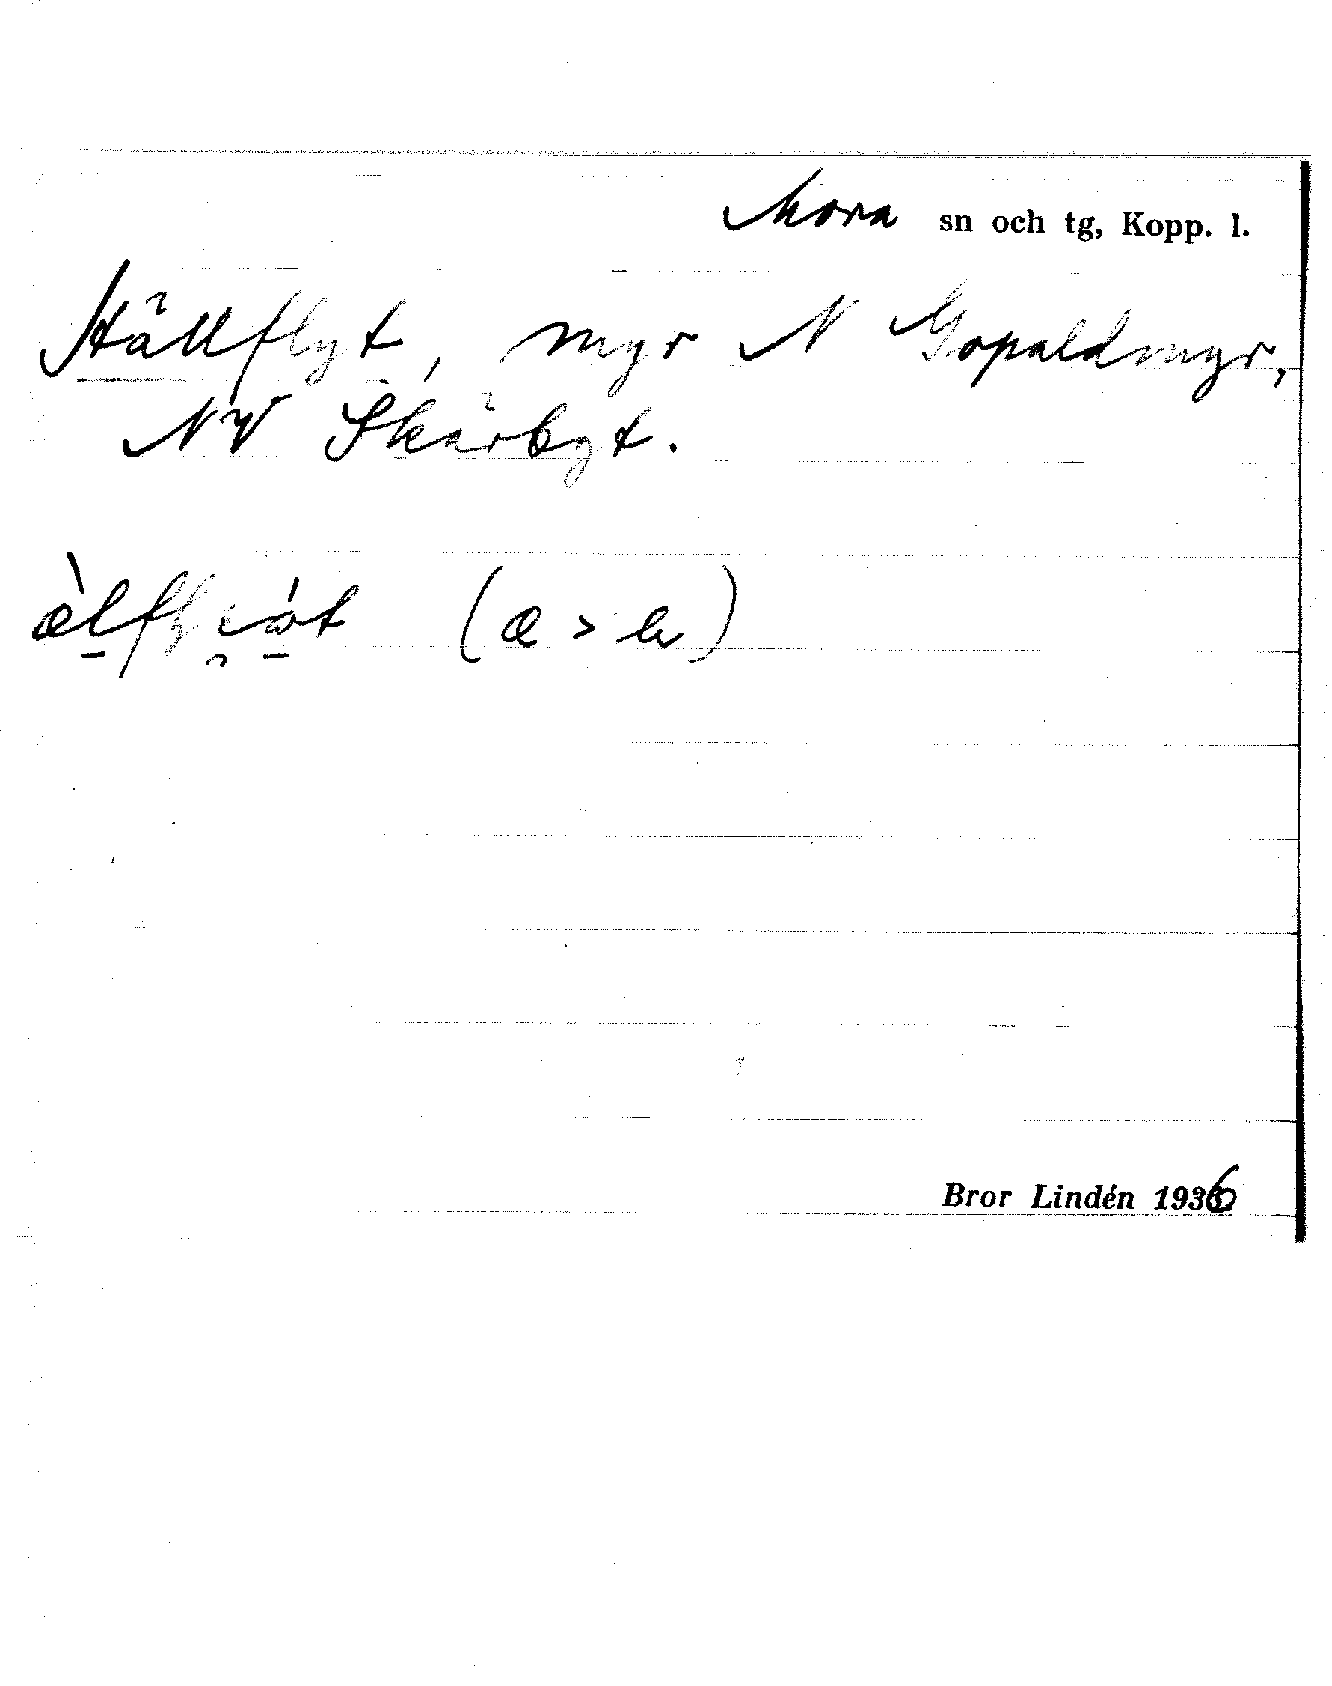 Mora sn och tg, Kopp. l.
Hällflyt, myr N Gopaldmyr,
NV Skärbyt.
(æ >
Bror Lindén 1936